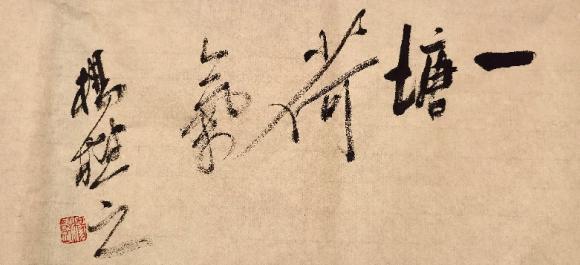 一塘荷氣
楊之